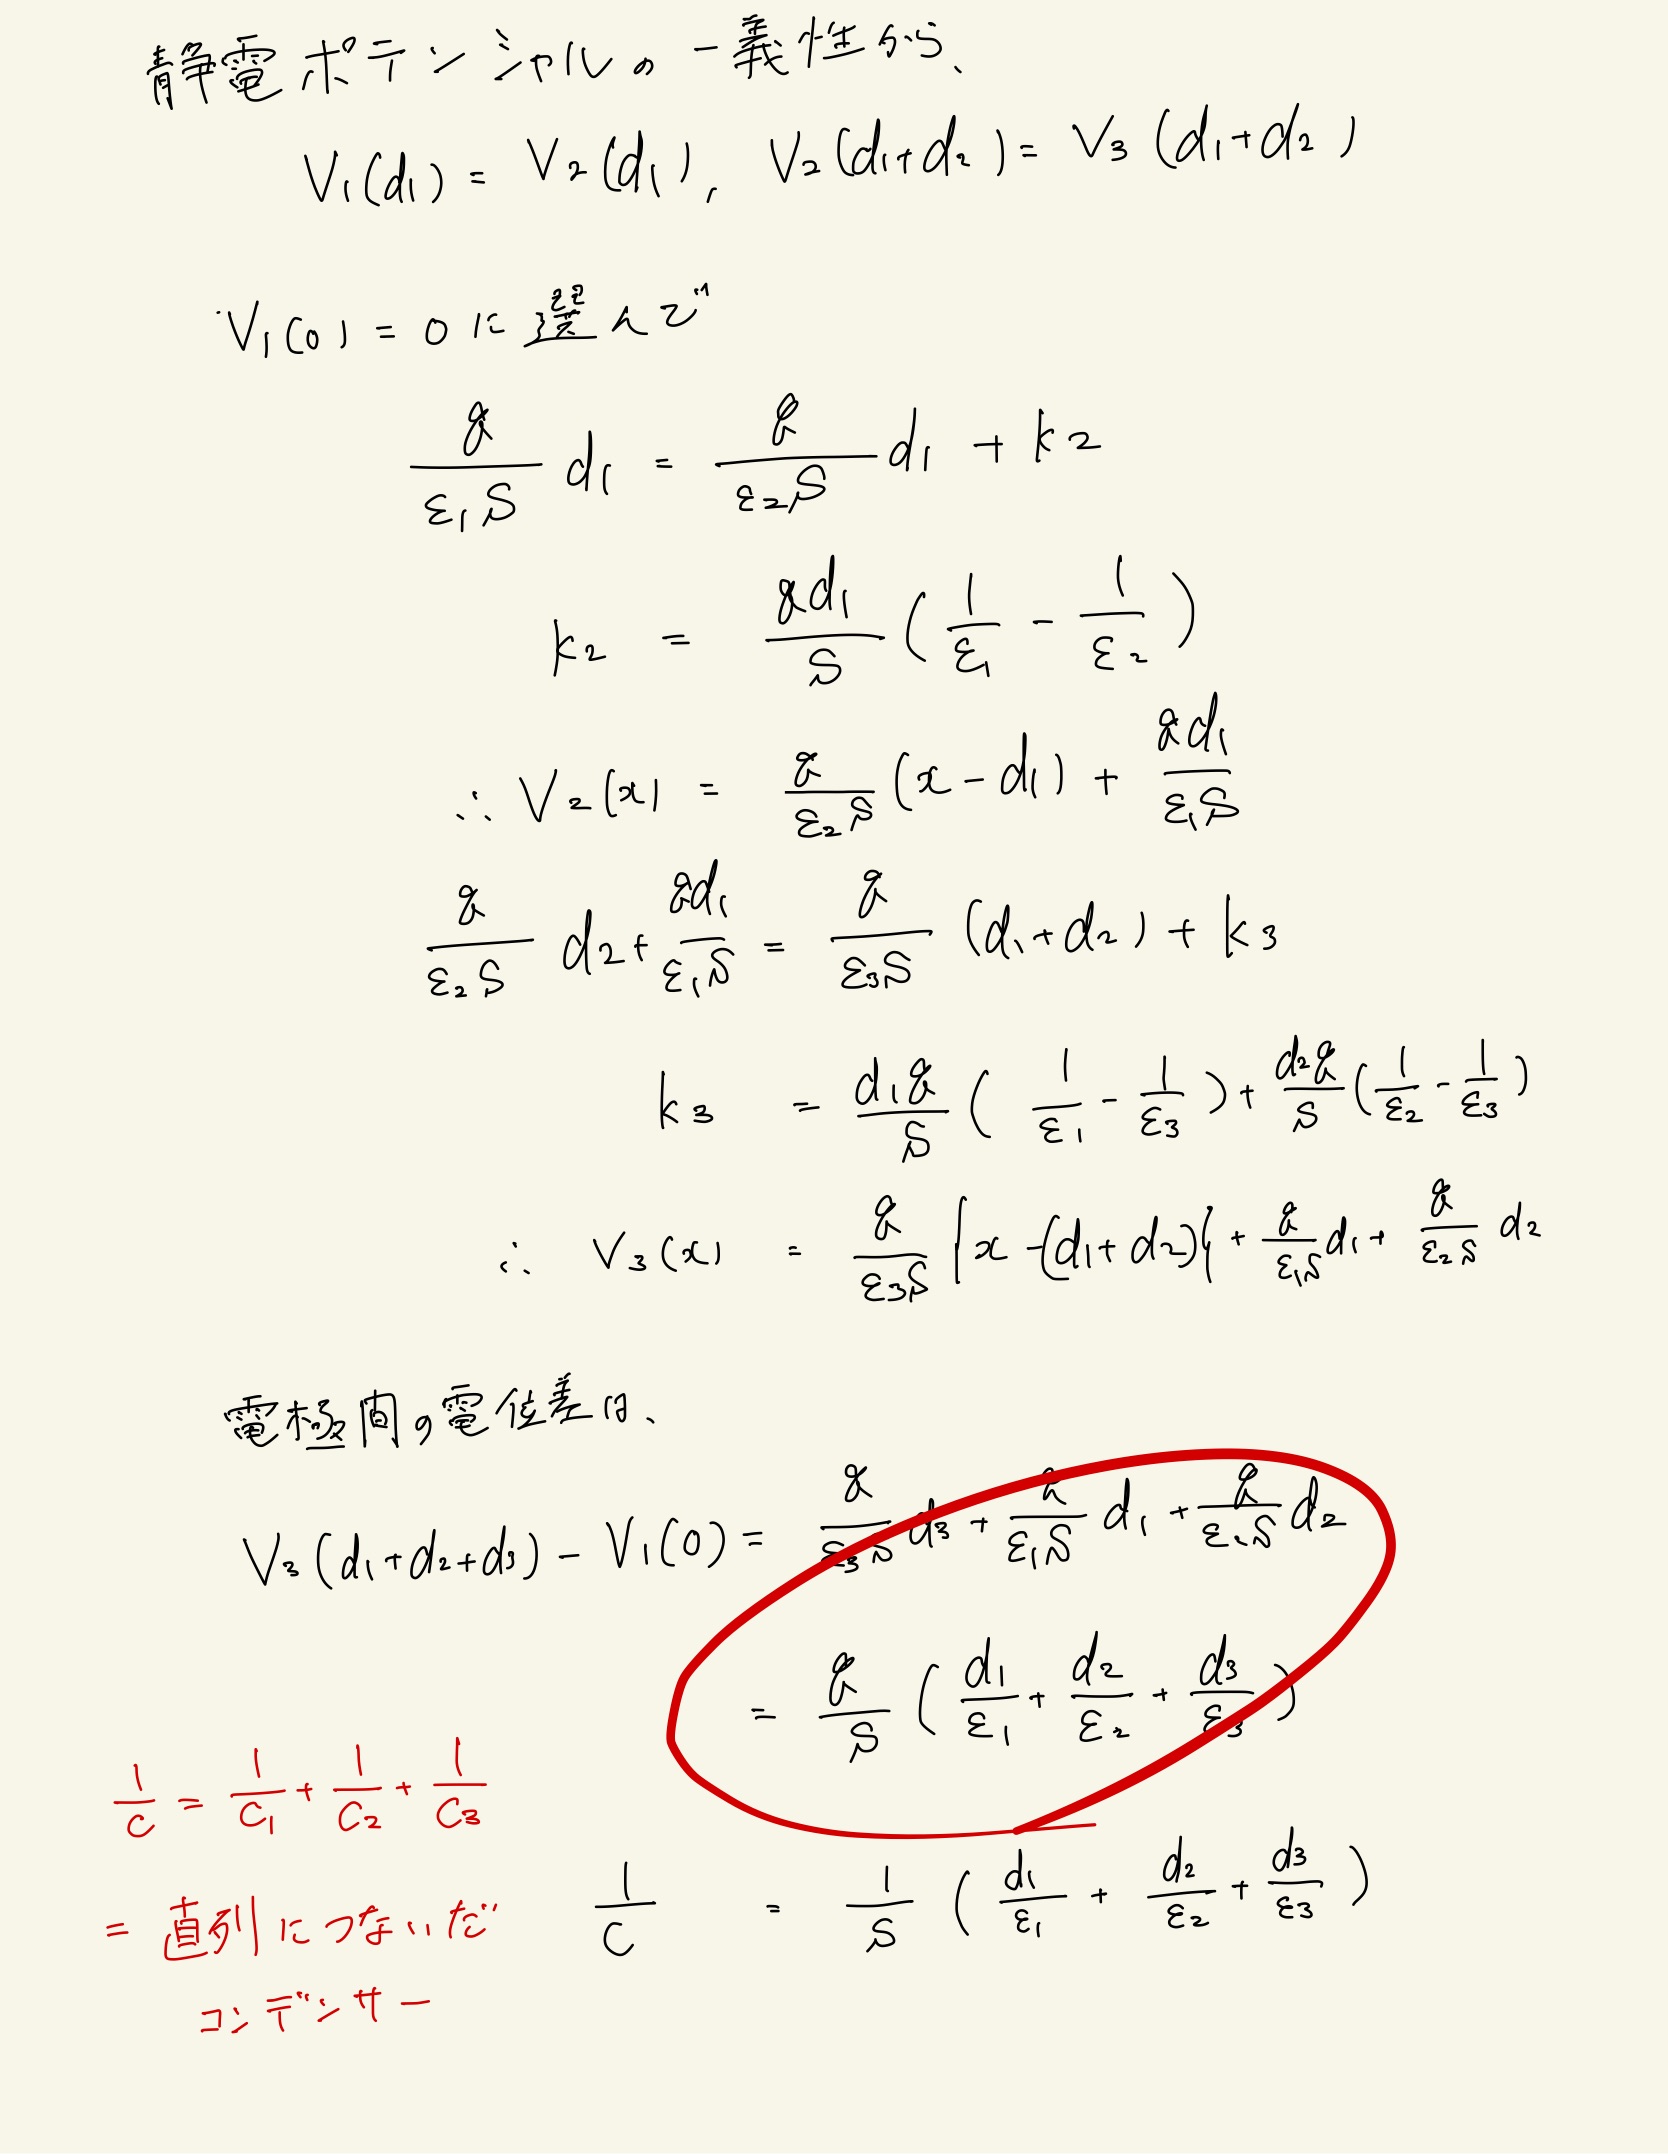 静電ポテンシャルの一義性から、
V₁(d₁) = V₂(d₁), V₂(d₁+d₂) = V₃(d₁+d₂)
V₁(0) = 0 に選んで
q/(ε₁S) d₁ = q/(ε₂S) d₁ + k₂
k₂ = qd₁/S (1/ε₁ - 1/ε₂)
∴ V₂(x) = q/(ε₂S) (x - d₁) + qd₁/(ε₁S)
q/(ε₂S) d₂ + qd₁/(ε₁S) = q/(ε₃S) (d₁+d₂) + k₃
k₃ = d₁q/S (1/ε₁ - 1/ε₃) + d₂q/S (1/ε₂ - 1/ε₃)
∴ V₃(x) = q/(ε₃S) {x - (d₁+d₂)} + q/(ε₁S) d₁ + q/(ε₂S) d₂
電極間の電位差は、
V₃(d₁+d₂+d₃) - V₁(0) = q/(ε₃S) d₃ + q/(ε₁S) d₁ + q/(ε₂S) d₂
= q/S (d₁/ε₁ + d₂/ε₂ + d₃/ε₃)
1/C = 1/C₁ + 1/C₂ + 1/C₃
1/C = 1/S (d₁/ε₁ + d₂/ε₂ + d₃/ε₃)
= 直列につないだ
コンデンサー